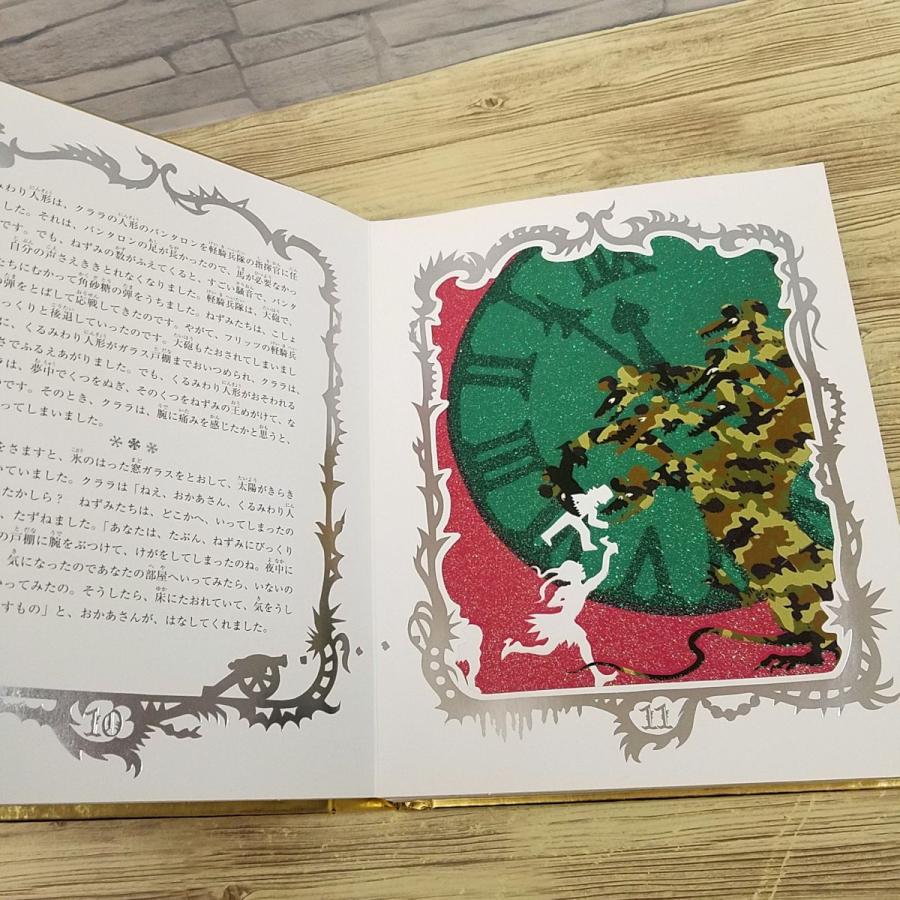 みわり人形は、クララの人形のパンタロンを軽騎兵隊の指揮官に任
した。それは、パンタロンの足が長かったので、馬が必要なかっ
です。でも、ねずみの数がふえてくると、すごい騒音で、パンタ
自分の声さえききとれなくなりました。軽騎兵隊は、大砲で、
たちにむかって角砂糖の弾をうちました。ねずみたちは、こしょ
の弾をとばして応戦してきたのです。やがて、フリッツの軽騎兵
っくりと後退していったのです。大砲もたおされてしまいまし
に、くるみわり人形がガラス戸棚までおいつめられ、クララは、
さでふるえあがりました。でも、くるみわり人形がおそわれる
は、夢中でくつをぬぎ、そのくつをねずみの王めがけて、な
のです。そのとき、クララは、腕に痛みを感じたかと思うと、
ってしまいました。
***
をさますと、氷のはった窓ガラスをとおして、太陽がきらき
いていました。クララは「ねえ、おかあさん、くるみわり人
たかしら? ねずみたちは、どこかへ、いってしまったの
、たずねました。「あなたは、たぶん、ねずみにびっくり
の戸棚に腕をぶつけて、けがをしてしまったのね。夜中に
気になったのであなたの部屋へいってみたら、いないの
ってみたの。そうしたら、床にたおれていて、気をうし
すもの」と、おかあさんが、はなしてくれました。
10
11